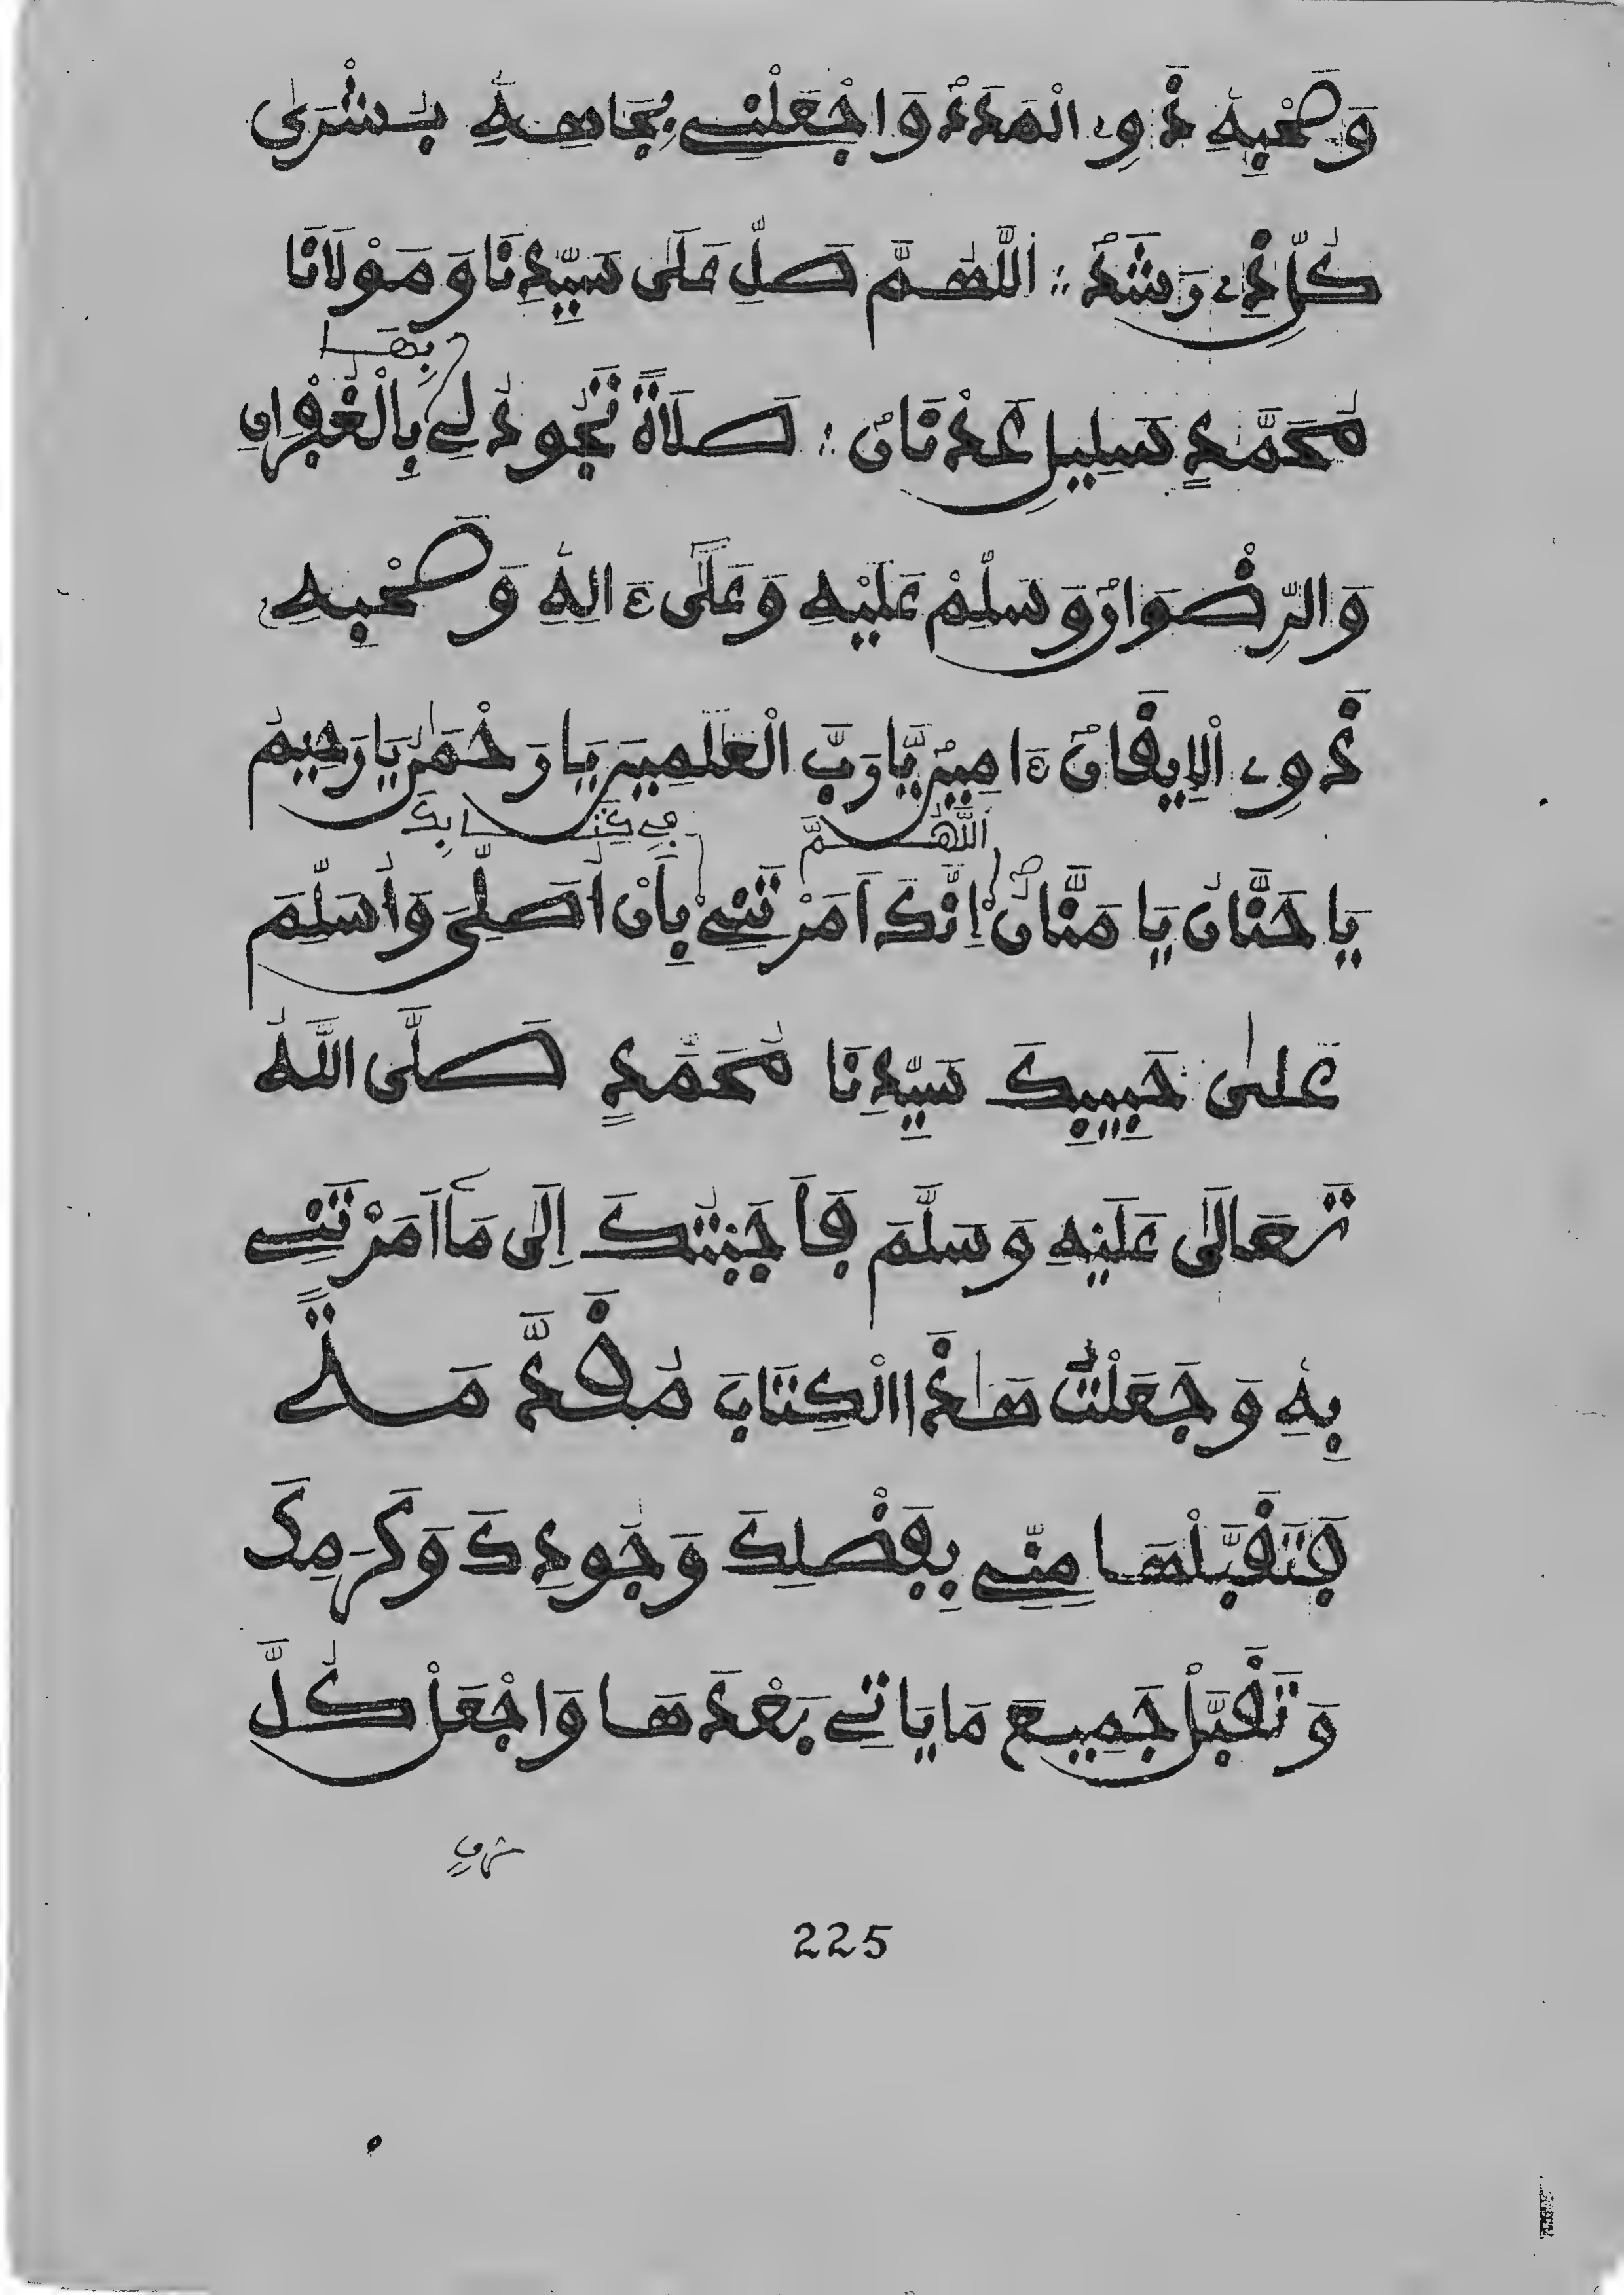 وَصَحْبِهِ ذَوِي الْمَدَدْ وَاجْعَلْنِي بِجَاهِهِ بُشْرَى
كُلِّ ذِي رَشَدْ : اللَّهُمَّ صَلِّ عَلَى سَيِّدِنَا وَمَوْلَانَا
بِهَا
مُحَمَّدٍ سَلِيلِ عَدْنَانْ : صَلَاةً تَجُودُ لِي بِالْغُفْرَانِ
وَالرِّضْوَانْ وَسَلِّمْ عَلَيْهِ وَعَلَى ءَالِهِ وَصَحْبِهِ
ذَوِي الْإِيقَانْ ءَامِينْ يَّا رَبَّ الْعَلَمِينَ يَا رَحْمَنُ يَا رَحِيمُ
اللَّهُمَّ فِي كِتَابِكَ
يَا حَنَّانُ يَا مَنَّانُ إِنَّكَ أَمَرْتَنِي بِأَنْ أُصَلِّيَ وَأُسَلِّمَ
عَلَى حَبِيبِكَ سَيِّدِنَا مُحَمَّدٍ صَلَّى اللَّهُ
تَعَالَى عَلَيْهِ وَسَلَّمَ فَأَجَبْتُكَ إِلَى مَا أَمَرْتَنِي
بِهِ وَجَعَلْتُ هَذَا الْكِتَابَ مُقَدَّمَةً
فَتَقَبَّلْهَا مِنِّي بِفَضْلِكَ وَجُودِكَ وَكَرَمِكَ
وَتَقَبَّلْ جَمِيعَ مَا يَاتِي بَعْدَهَا وَاجْعَلْ كُلَّ
225